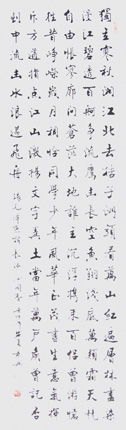 獨立寒秋湘江北去橘子洲頭看萬山紅遍層林盡
染漫江碧透百舸爭流鷹擊長空魚翔淺底萬類霜天競
自由悵寥廓問蒼茫大地誰主沉浮攜來百侶曾遊憶
往昔崢嶸歲月稠恰同學少年風華正茂書生意氣揮
斥方遒指點江山激揚文字糞土當年萬戶侯曾記否
到中流擊水浪遏飛舟